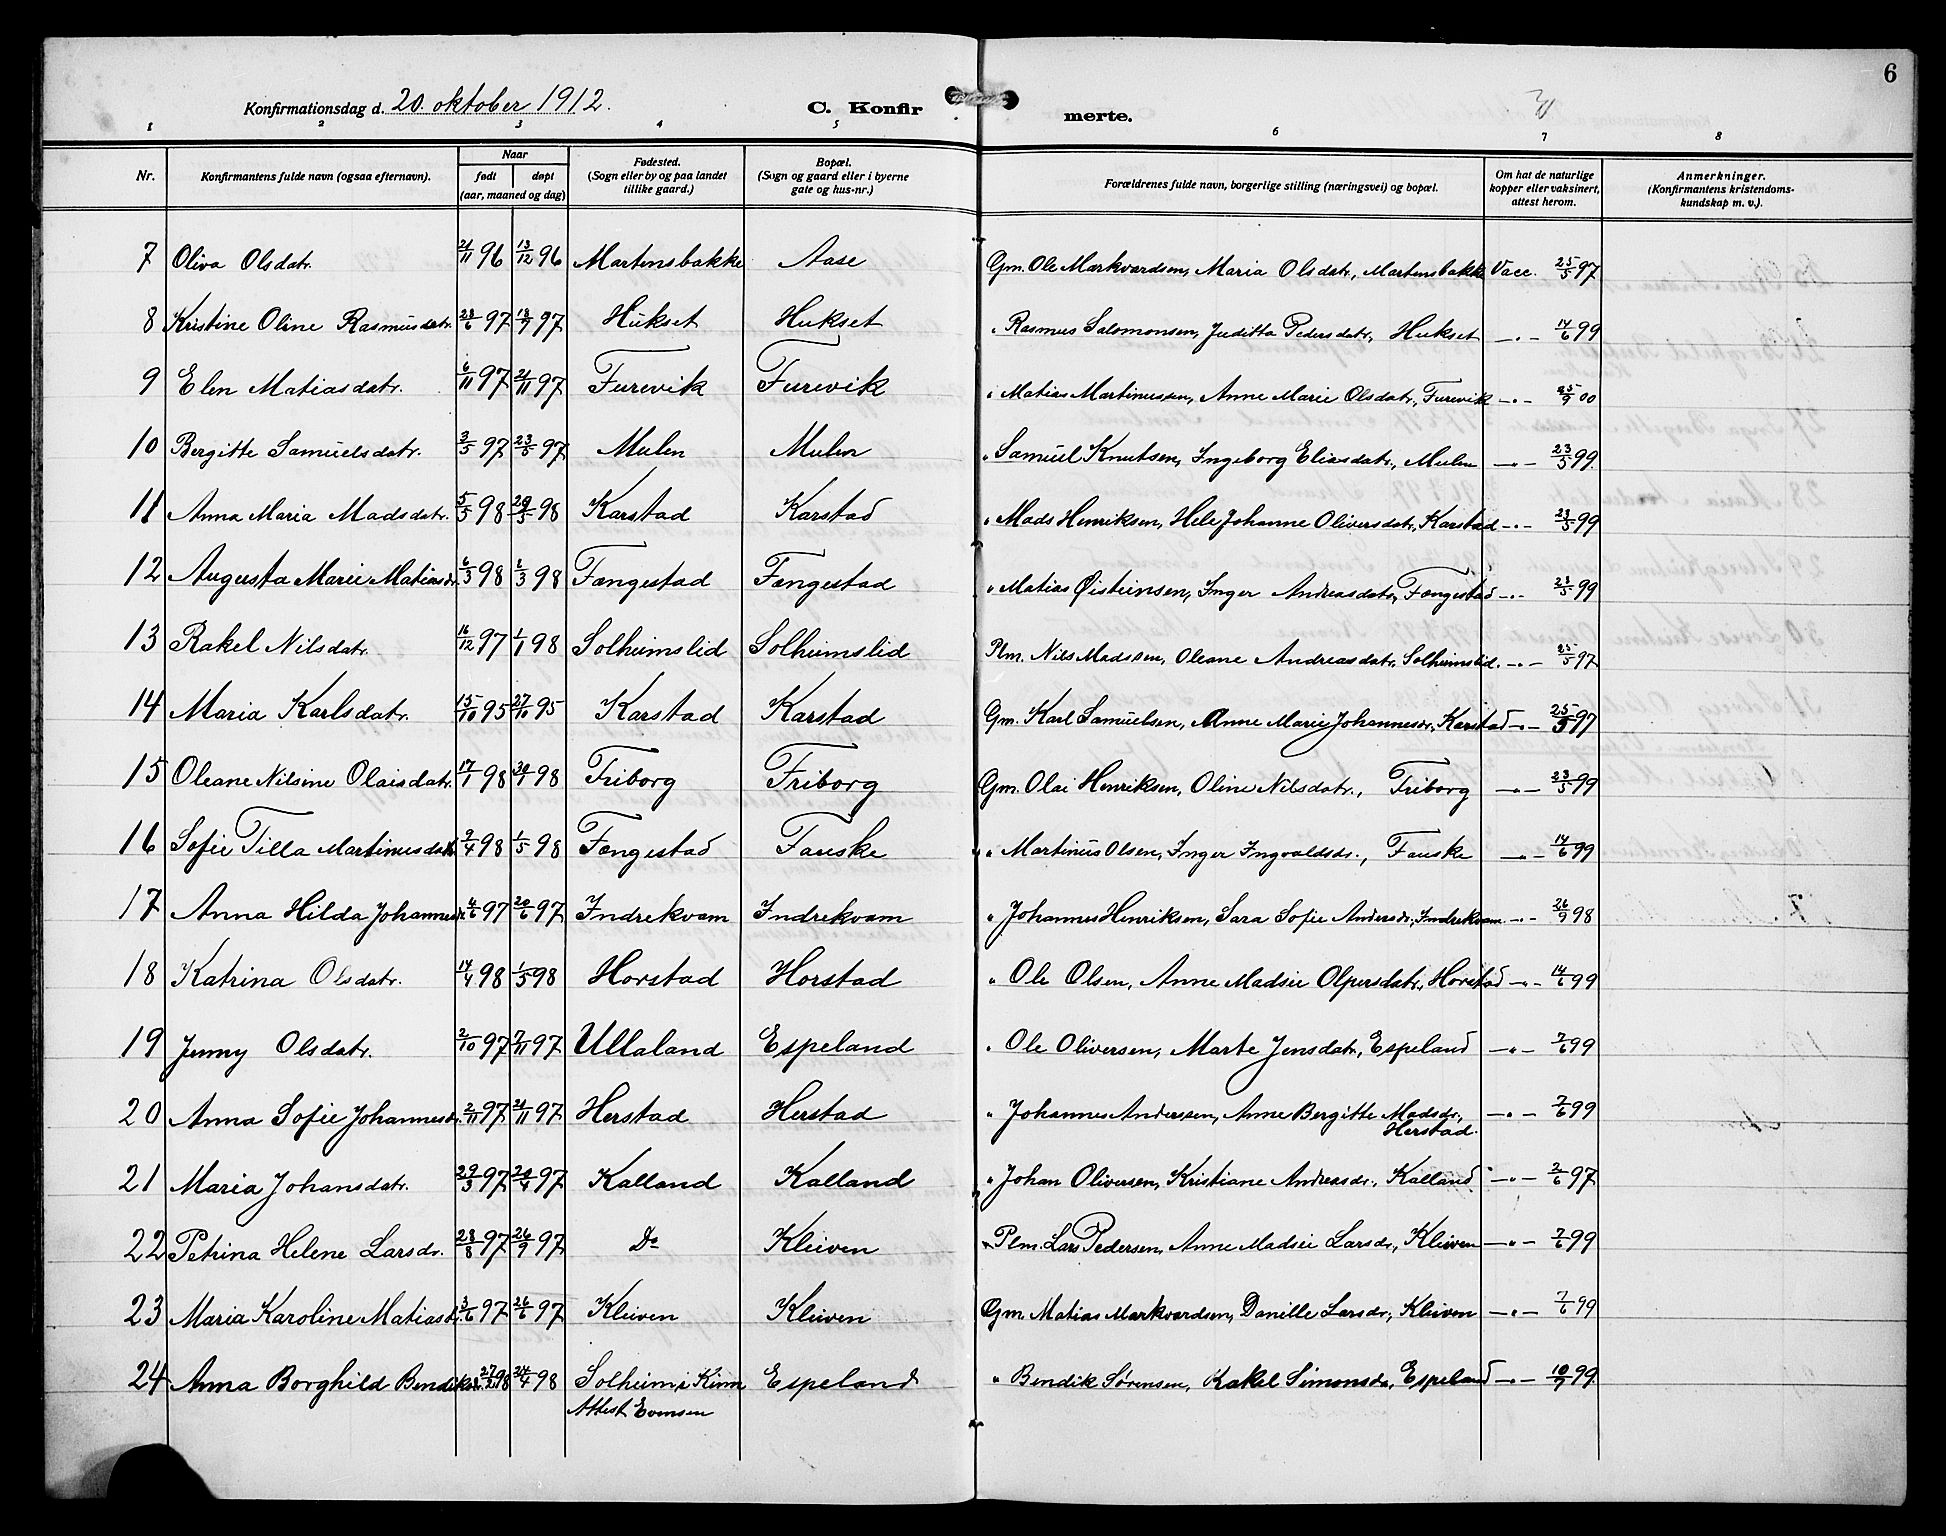 6
Konfirmationsdag d. 20. oktober 1912.
C. Konfir
merte.
1 2 3 4 5 6 7 8
Nr.
Konfirmantens fulde navn (ogsaa efternavn).
Naar
født
døpt
(aar, maaned og dag)
Fødested.
(Sogn eller by og paa landet
tillike gaard.)
Bopæl.
(Sogn og gaard eller i byerne
gate og hus-nr.)
Forældrenes fulde navn, borgerlige stilling (næringsvei) og bopæl.
Om hat de naturlige
kopper eller vaksinert,
attest herom.
Anmerkninger.
(Konfirmantens kristendoms-
kundskap m. v.).
7 Oliva Olsdatr. 21/11 96 13/12 96 Martensbakke Aase Gm. Ole Markvardsen, Maria Olsdatr., Martensbakke Vacc. 25/5 97
8 Kristine Oline Rasmusdatr. 28/6 97 18/7 97 Hukset Hukset " Rasmus Salomonsen, Juditta Pedersdatr., Hukset —"— 14/6 99
9 Elen Matiasdatr. 6/11 97 21/11 97 Furevik Furevik " Matias Martinussen, Anne Marie Olsdatr., Furevik —"— 25/9 00
10 Bergitte Samuelsdatr. 3/5 97 23/5 97 Mulen Mulen " Samuel Knutsen, Ingeborg Eliasdatr., Mulen —"— 23/5 99
11 Anna Maria Madsdatr. 5/5 98 29/5 98 Karstad Karstad " Mads Henriksen, Hele Johanne Oliversdatr., Karstad —"— 23/5 99
12 Augusta Marie Matiasdr. 6/3 98 /3 98 Fængestad Fængestad " Matias Øisteinsen, Inger Andreasdatr., Fængestad —"— 23/5 99
13 Rakel Nilsdatr. 16/12 97 1/1 98 Solheimslid Solheimslid Plm. Nils Madssen, Oleane Andreasdatr., Solheimslid. —"— 25/5 97
14 Maria Karlsdatr. 15/10 95 27/10 95 Karstad Karstad Gm. Karl Samuelsen, Anne Marie Johannesdr., Karstad —"— 25/5 97
15 Oleane Nilsine Olaisdatr. 17/1 98 30/1 98 Friborg Friborg Gm. Olai Henriksen, Oline Nilsdatr., Friborg —"— 23/5 99
16 Sofie Tilla Martinusdatr. 9/4 98 1/5 98 Fængestad Fauske " Martinus Olsen, Inger Ingvaldsdr., Fauske —"— 14/6 99
17 Anna Hilda Johannesdr. 4/6 97 20/6 97 Indrekvam Indrekvam " Johannes Henriksen, Sara Sofie Andersdr., Indrekvam —"— 26/9 98
18 Katrina Olsdatr. 14/4 98 1/5 98 Horstad Horstad " Ole Olsen, Anne Madsie Olpersdatr., Horstad —"— 14/6 99
19 Jenny Olsdatr. 2/10 97 7/11 97 Ullaland Espeland " Ole Oliversen, Marte Jensdatr., Espeland —"— 7/6 99
20 Anna Sofie Johannesdr. 2/11 97 21/11 97 Herstad Herstad " Johannes Anderssen, Anne Bergitte Madsdr., —"— 7/6 99
Herstad.
21 Maria Johansdatr. 29/3 97 20/4 97 Kalland Kalland " Johan Oliversen, Kristiane Andreasdr., Kalland —"— 2/6 97
22 Petrina Helene Larsdr. 28/8 97 26/9 97 Do Kleiven Plm. Lars Pedersen, Anne Madsie Larsdr., Kleiven —"— 7/6 99
23 Maria Karoline Matiasdr. 3/6 97 26/6 97 Kleiven Kleiven Gm. Matias Markvardsen, Danille Larsdr., Kleiven —"— 7/6 99
24 Anna Borghild Bendiksd. 27/2 98 24/4 98 Solheim i Kinn Espeland " Bendik Sørensen, Rakel Simonsdr., Espeland —"— 10/7 99.
Attest Evensen